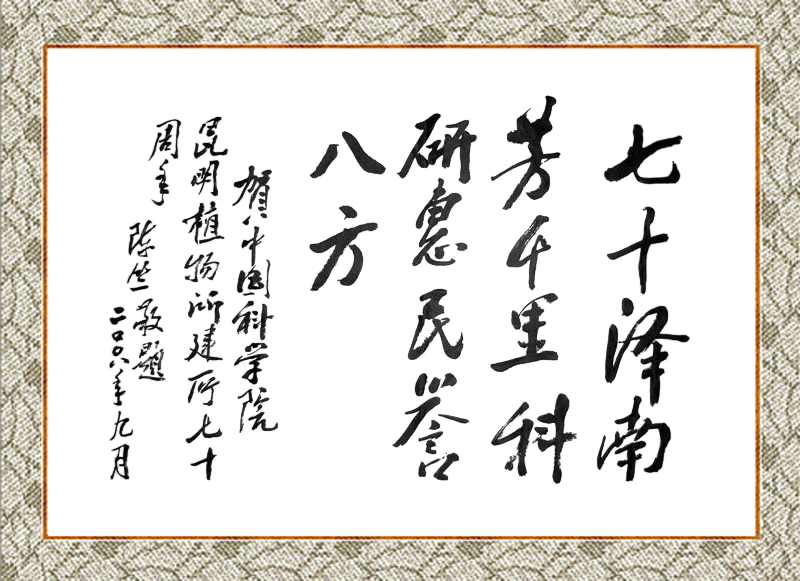 七十泽南
芳千里科
研惠民誉
八方
贺中国科学院
昆明植物所建所七十
周年
陈竺敬题
二〇〇八年九月